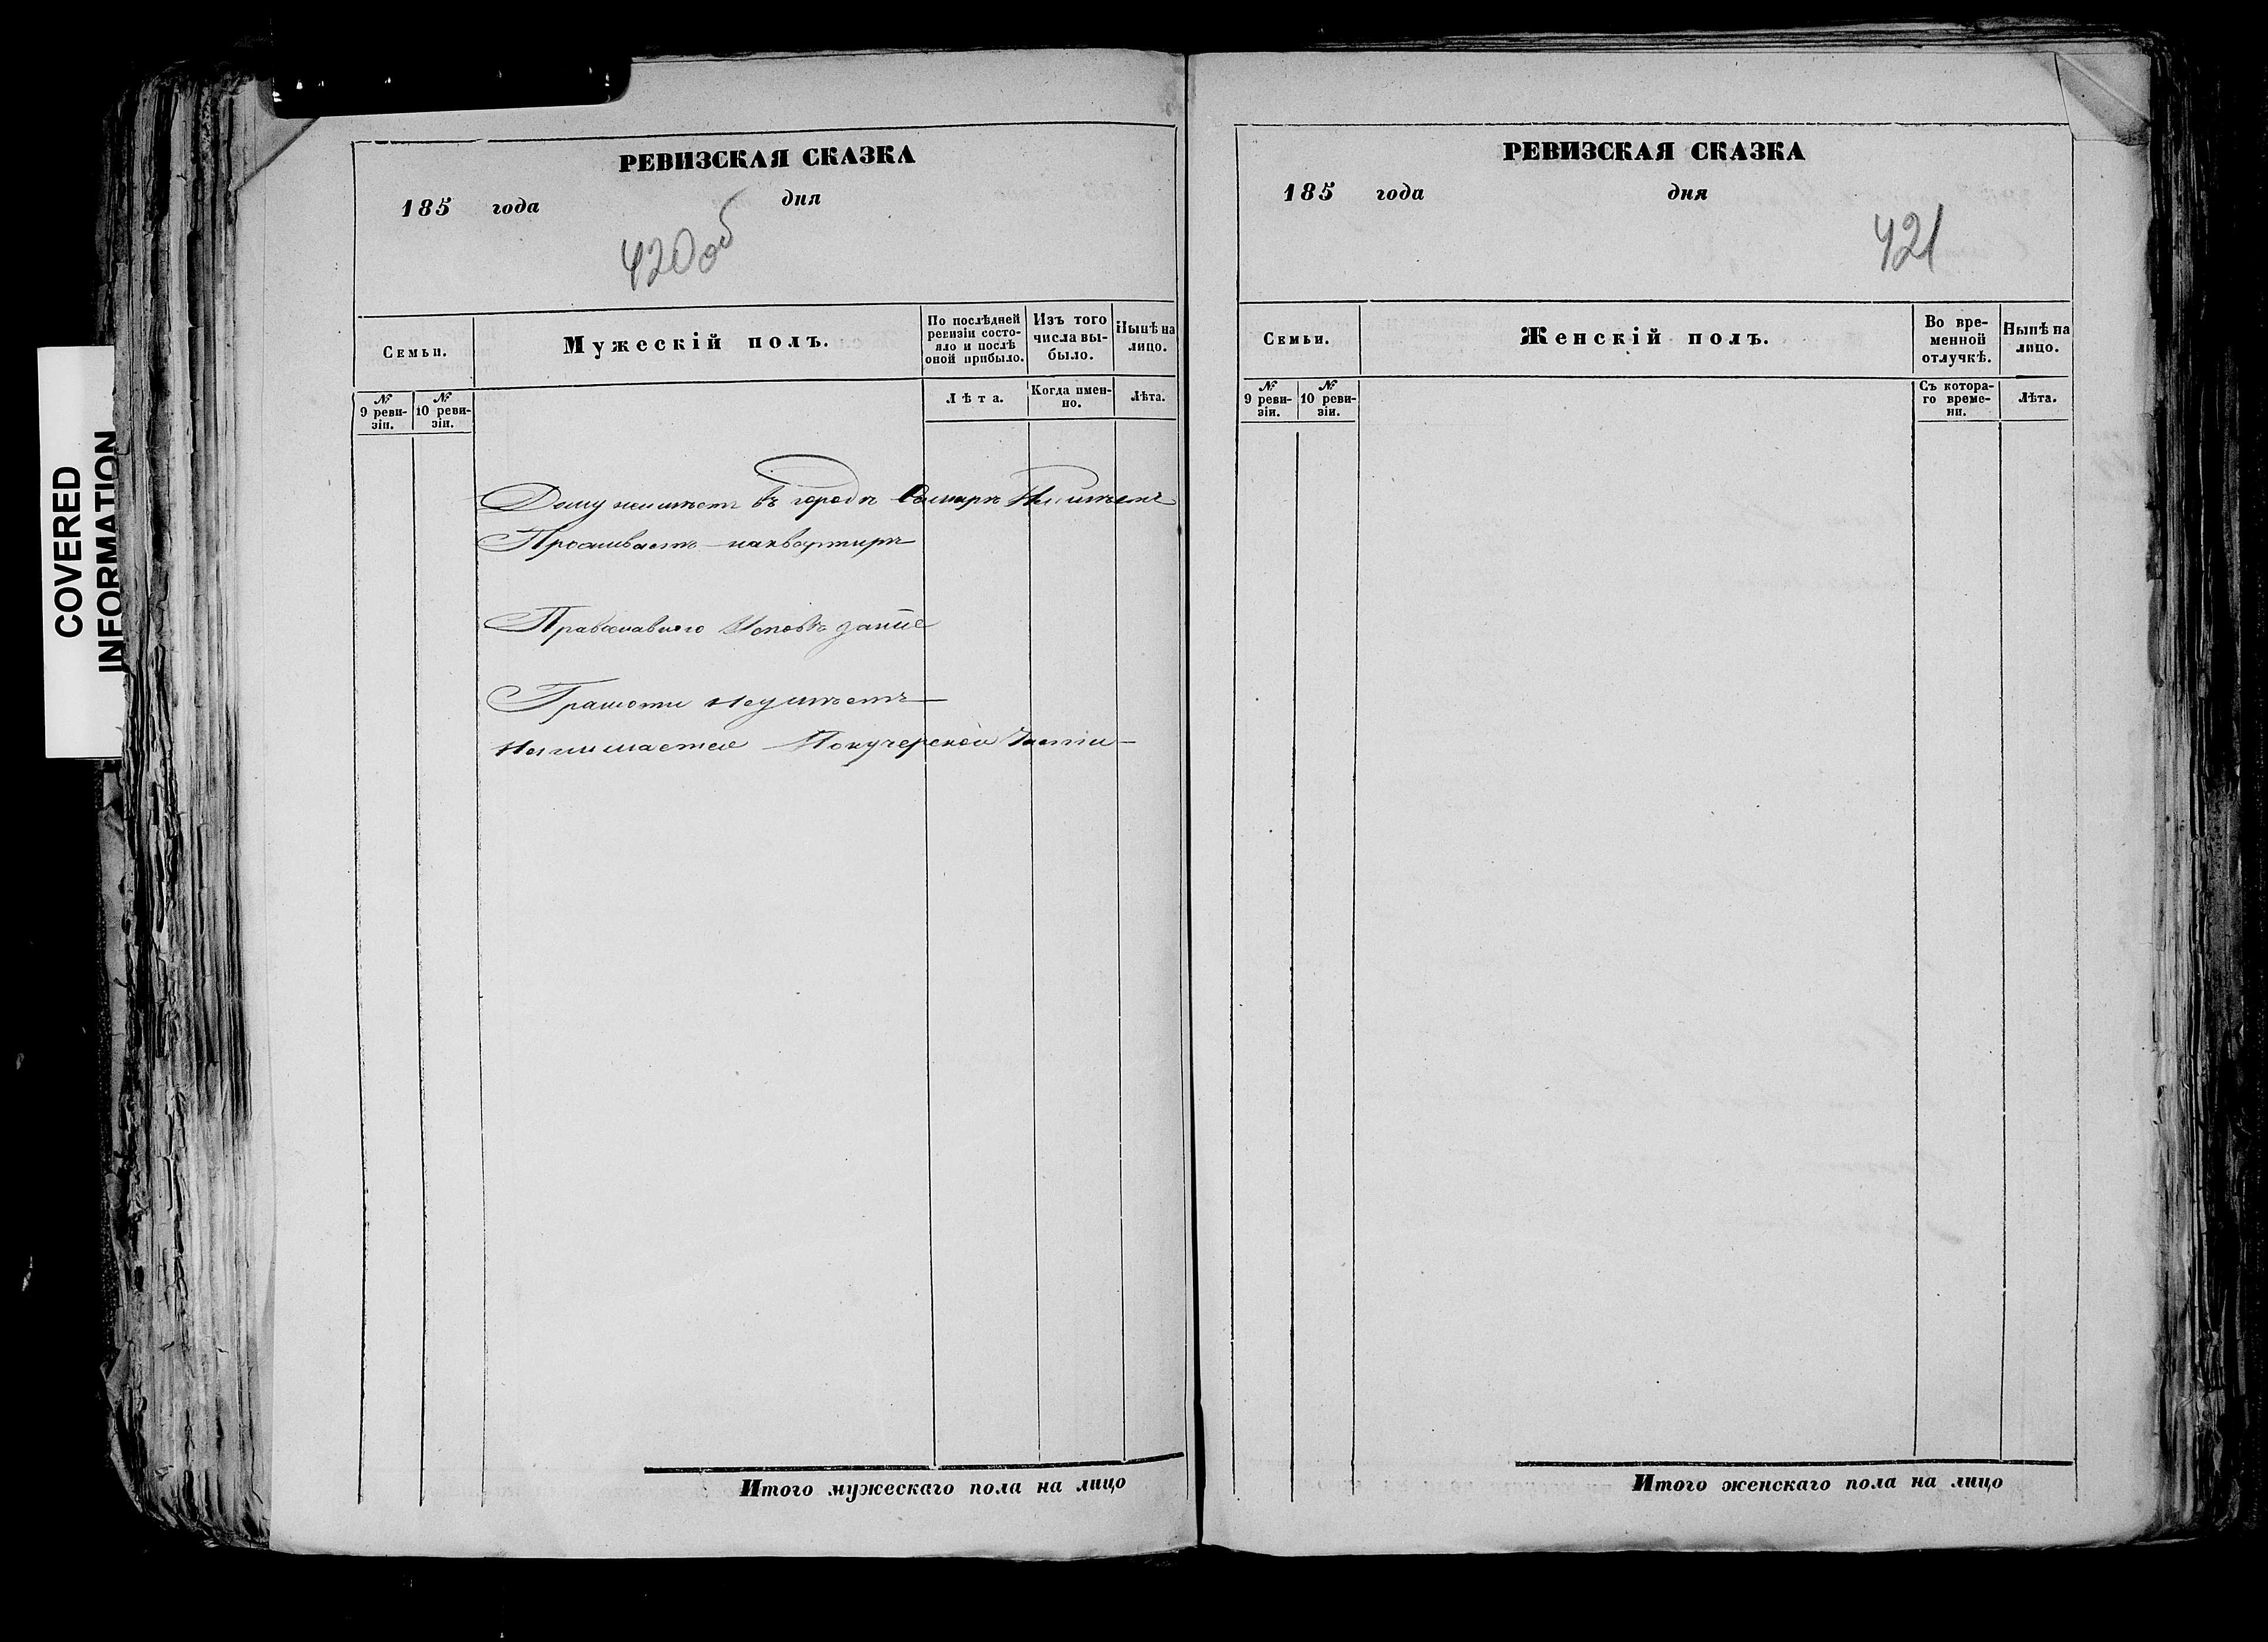 COVERED
INFORMATION
РЕВИЗСКАЯ СКАЗКА
185 года дня
420об
Семьи.
Мужескій полъ.
По послѣдней ревизіи состояло и послѣ оной прибыло.
Изъ того числа выбыло.
Нынѣ на лицо.
№ 9 ревизіи.
№ 10 ревизіи.
Лѣта.
Когда именно.
Лѣта.
Дому неимѣетъ въ городѣ Самарѣ Неимѣетъ
Проживаетъ наквартирѣ
Православного Исповѣданіе
Грамоти неумѣетъ
Нанимается Покучерской Части
Итого мужескаго пола на лицо
РЕВИЗСКАЯ СКАЗКА
185 года дня
421
Семьи.
Женскій полъ.
Во временной отлучкѣ.
Нынѣ на лицо.
№ 9 ревизіи.
№ 10 ревизіи.
Съ котораго времени.
Лѣта.
Итого женскаго пола на лицо